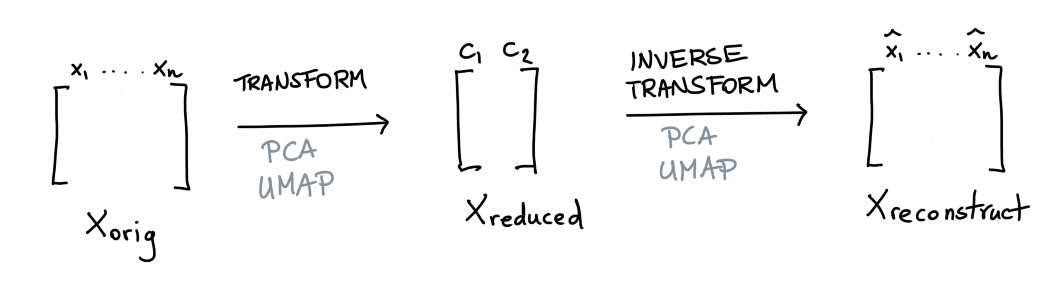 x₁ .... xₙ
TRANSFORM
PCA
UMAP
Xorig
C₁ C₂
Xreduced
INVERSE
TRANSFORM
PCA
UMAP
x̂₁ .... x̂ₙ
Xreconstruct